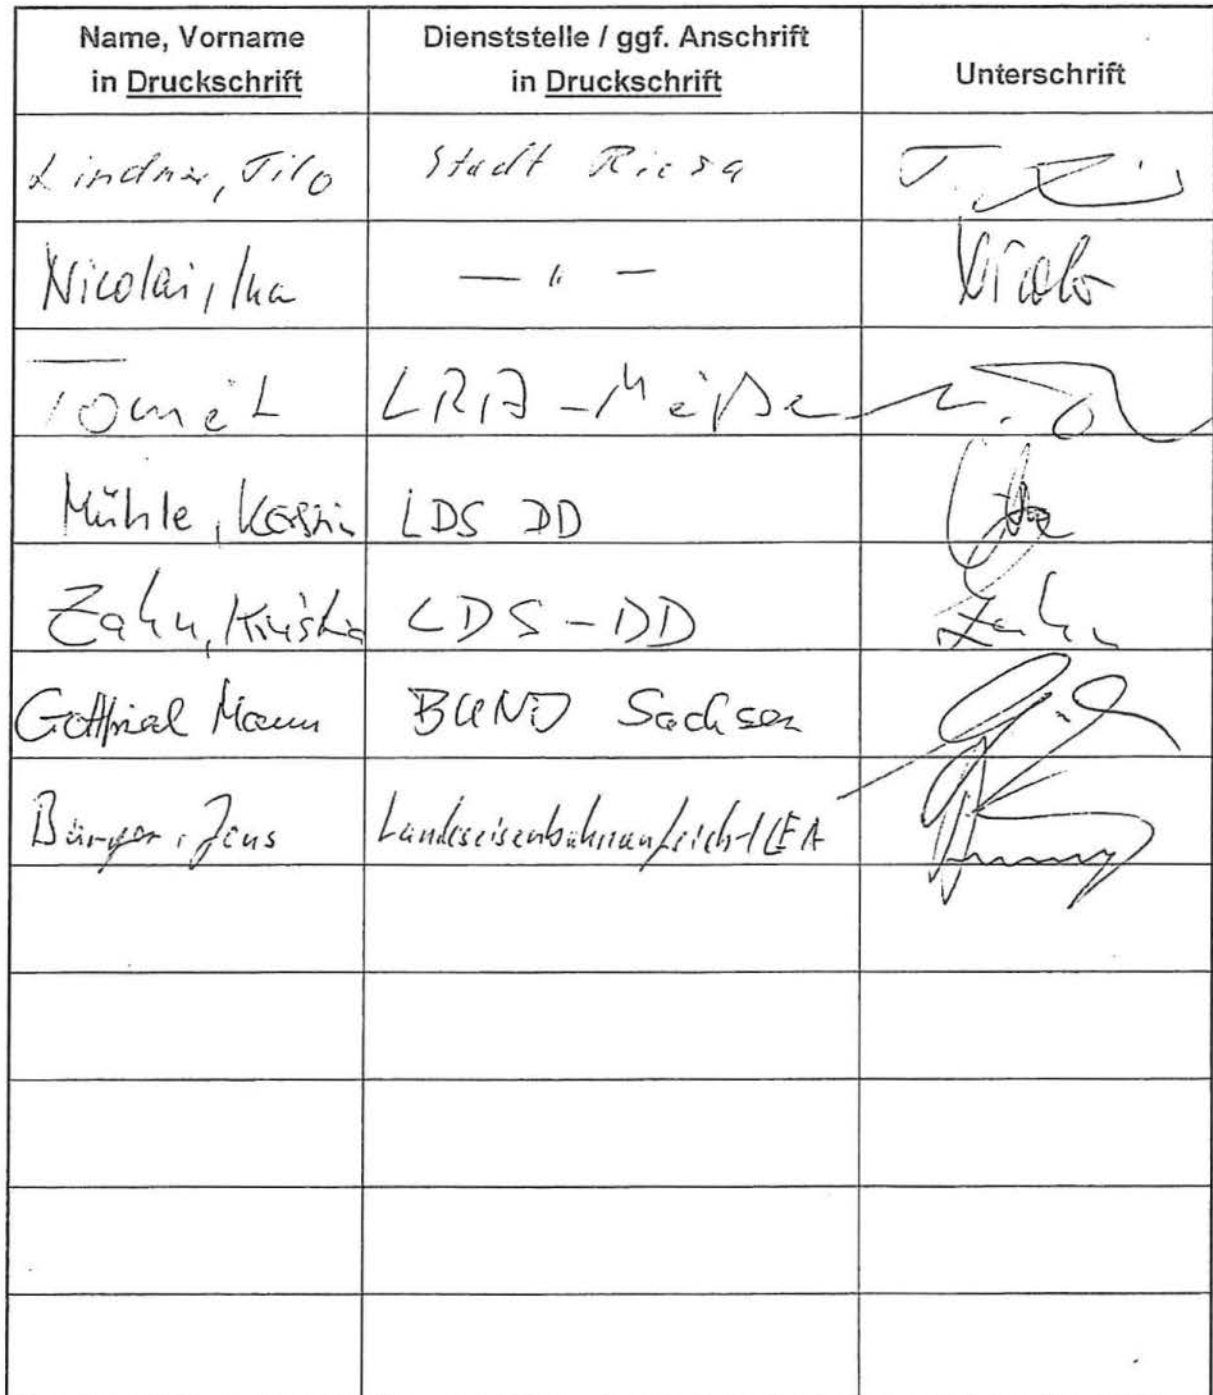 Name, Vorname
in Druckschrift
Dienststelle / ggf. Anschrift
in Druckschrift
Unterschrift
Lindner, Tilo Stadt Riesa
Nicolai, Ina — " —
LRA - Meißen
Mühle, Kerstin LDS DD
Zahn, LDS - DD Zahn
Gottfried Mann BUND Sachsen
Bürger, Jens Landeseisenbahnaufsicht / LEA